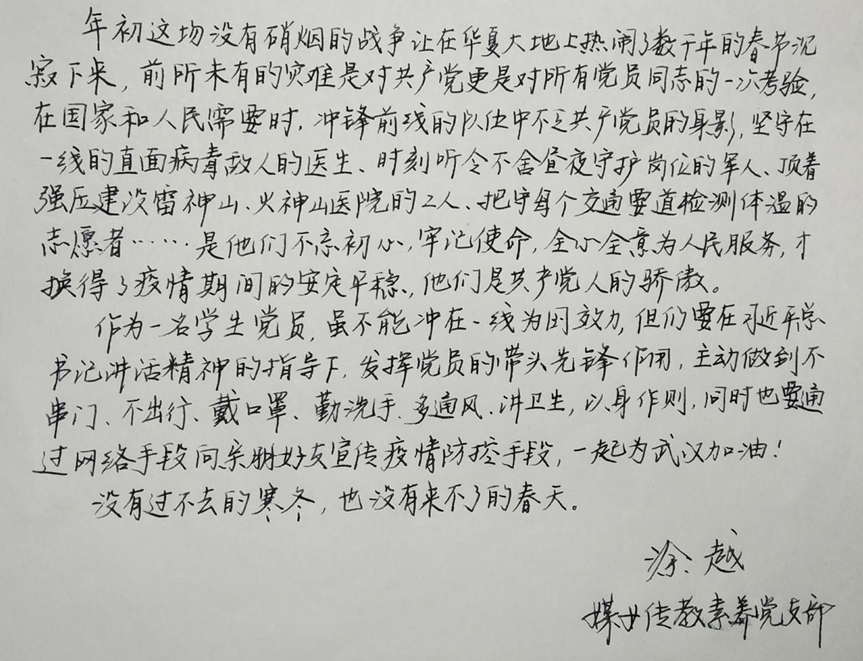 年初这场没有硝烟的战争让在华夏大地上热闹了数千年的春节沉
寂下来，前所未有的灾难是对共产党更是对所有党员同志的一次考验，
在国家和人民需要时，冲锋前线的队伍中不乏共产党员的身影，坚守在
一线的直面病毒敌人的医生、时刻听令不舍昼夜守护岗位的军人、顶着
强压建设雷神山、火神山医院的工人、把守每个交通要道检测体温的
志愿者……是他们不忘初心，牢记使命，全心全意为人民服务，才
换得了疫情期间的安定平稳，他们是共产党人的骄傲。
作为一名学生党员，虽不能冲在一线为国效力，但们要在习近平总
书记讲话精神的指导下，发挥党员的带头先锋作用，主动做到不
串门、不出行、戴口罩、勤洗手、多通风、讲卫生，以身作则，同时也要通
过网络手段向亲朋好友宣传疫情防控手段，一起为武汉加油！
没有过不去的寒冬，也没有来不了的春天。
涂越
媒介传教素养党支部